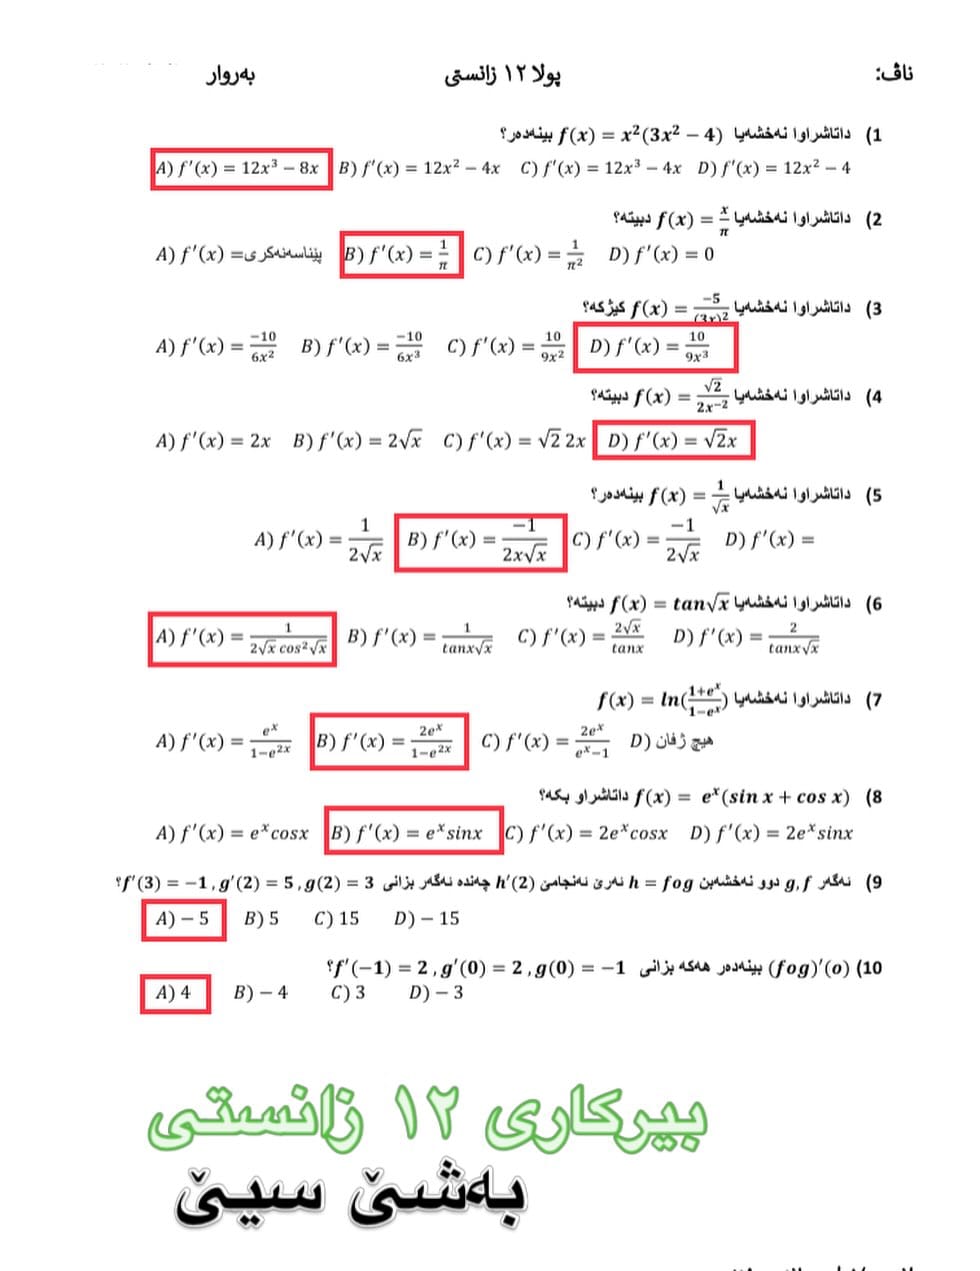 ناڤ: پولا ١٢ زانستی بەروار
1) داتاشراوا نەخشەیا f(x) = x²(3x² − 4) بینەدەر؟
A) f′(x) = 12x³ − 8x B) f′(x) = 12x² − 4x C) f′(x) = 12x³ − 4x D) f′(x) = 12x² − 4
2) داتاشراوا نەخشەیا f(x) = x/π دبیتە؟
A) f′(x) =پێناسەنەکری B) f′(x) = 1/π C) f′(x) = 1/π² D) f′(x) = 0
3) داتاشراوا نەخشەیا f(x) = −5/(3x)² کیژکە؟
A) f′(x) = −10/6x² B) f′(x) = −10/6x³ C) f′(x) = 10/9x² D) f′(x) = 10/9x³
4) داتاشراوا نەخشەیا f(x) = √2/2x⁻² دبیتە؟
A) f′(x) = 2x B) f′(x) = 2√x C) f′(x) = √2 2x D) f′(x) = √2x
5) داتاشراوا نەخشەیا f(x) = 1/√x بینەدەر؟
A) f′(x) = 1/2√x B) f′(x) = −1/2x√x C) f′(x) = −1/2√x D) f′(x) =
6) داتاشراوا نەخشەیا f(x) = tan√x دبیتە؟
A) f′(x) = 1/2√x cos²√x B) f′(x) = 1/tanx√x C) f′(x) = 2√x/tanx D) f′(x) = 2/tanx√x
7) داتاشراوا نەخشەیا f(x) = ln(1+eˣ/1−eˣ)
A) f′(x) = eˣ/1−e²ˣ B) f′(x) = 2eˣ/1−e²ˣ C) f′(x) = 2eˣ/eˣ−1 D) هیچ ژڤان
8) f(x) = eˣ(sin x + cos x) داتاشراو بکە؟
A) f′(x) = eˣcosx B) f′(x) = eˣsinx C) f′(x) = 2eˣcosx D) f′(x) = 2eˣsinx
9) ئەگەر g,f دوو نەخشەبن h = fog ئەرێ ئەنجامێ h′(2) چەندە ئەگەر بزانی f′(3) = −1, g′(2) = 5, g(2) = 3؟
A) − 5 B) 5 C) 15 D) − 15
10) (fog)′(o) بینەدەر هەکە بزانی f′(−1) = 2, g′(0) = 2, g(0) = −1؟
A) 4 B) − 4 C) 3 D) − 3
بیرکاری ١٢ زانستی
بەشێ سیێ